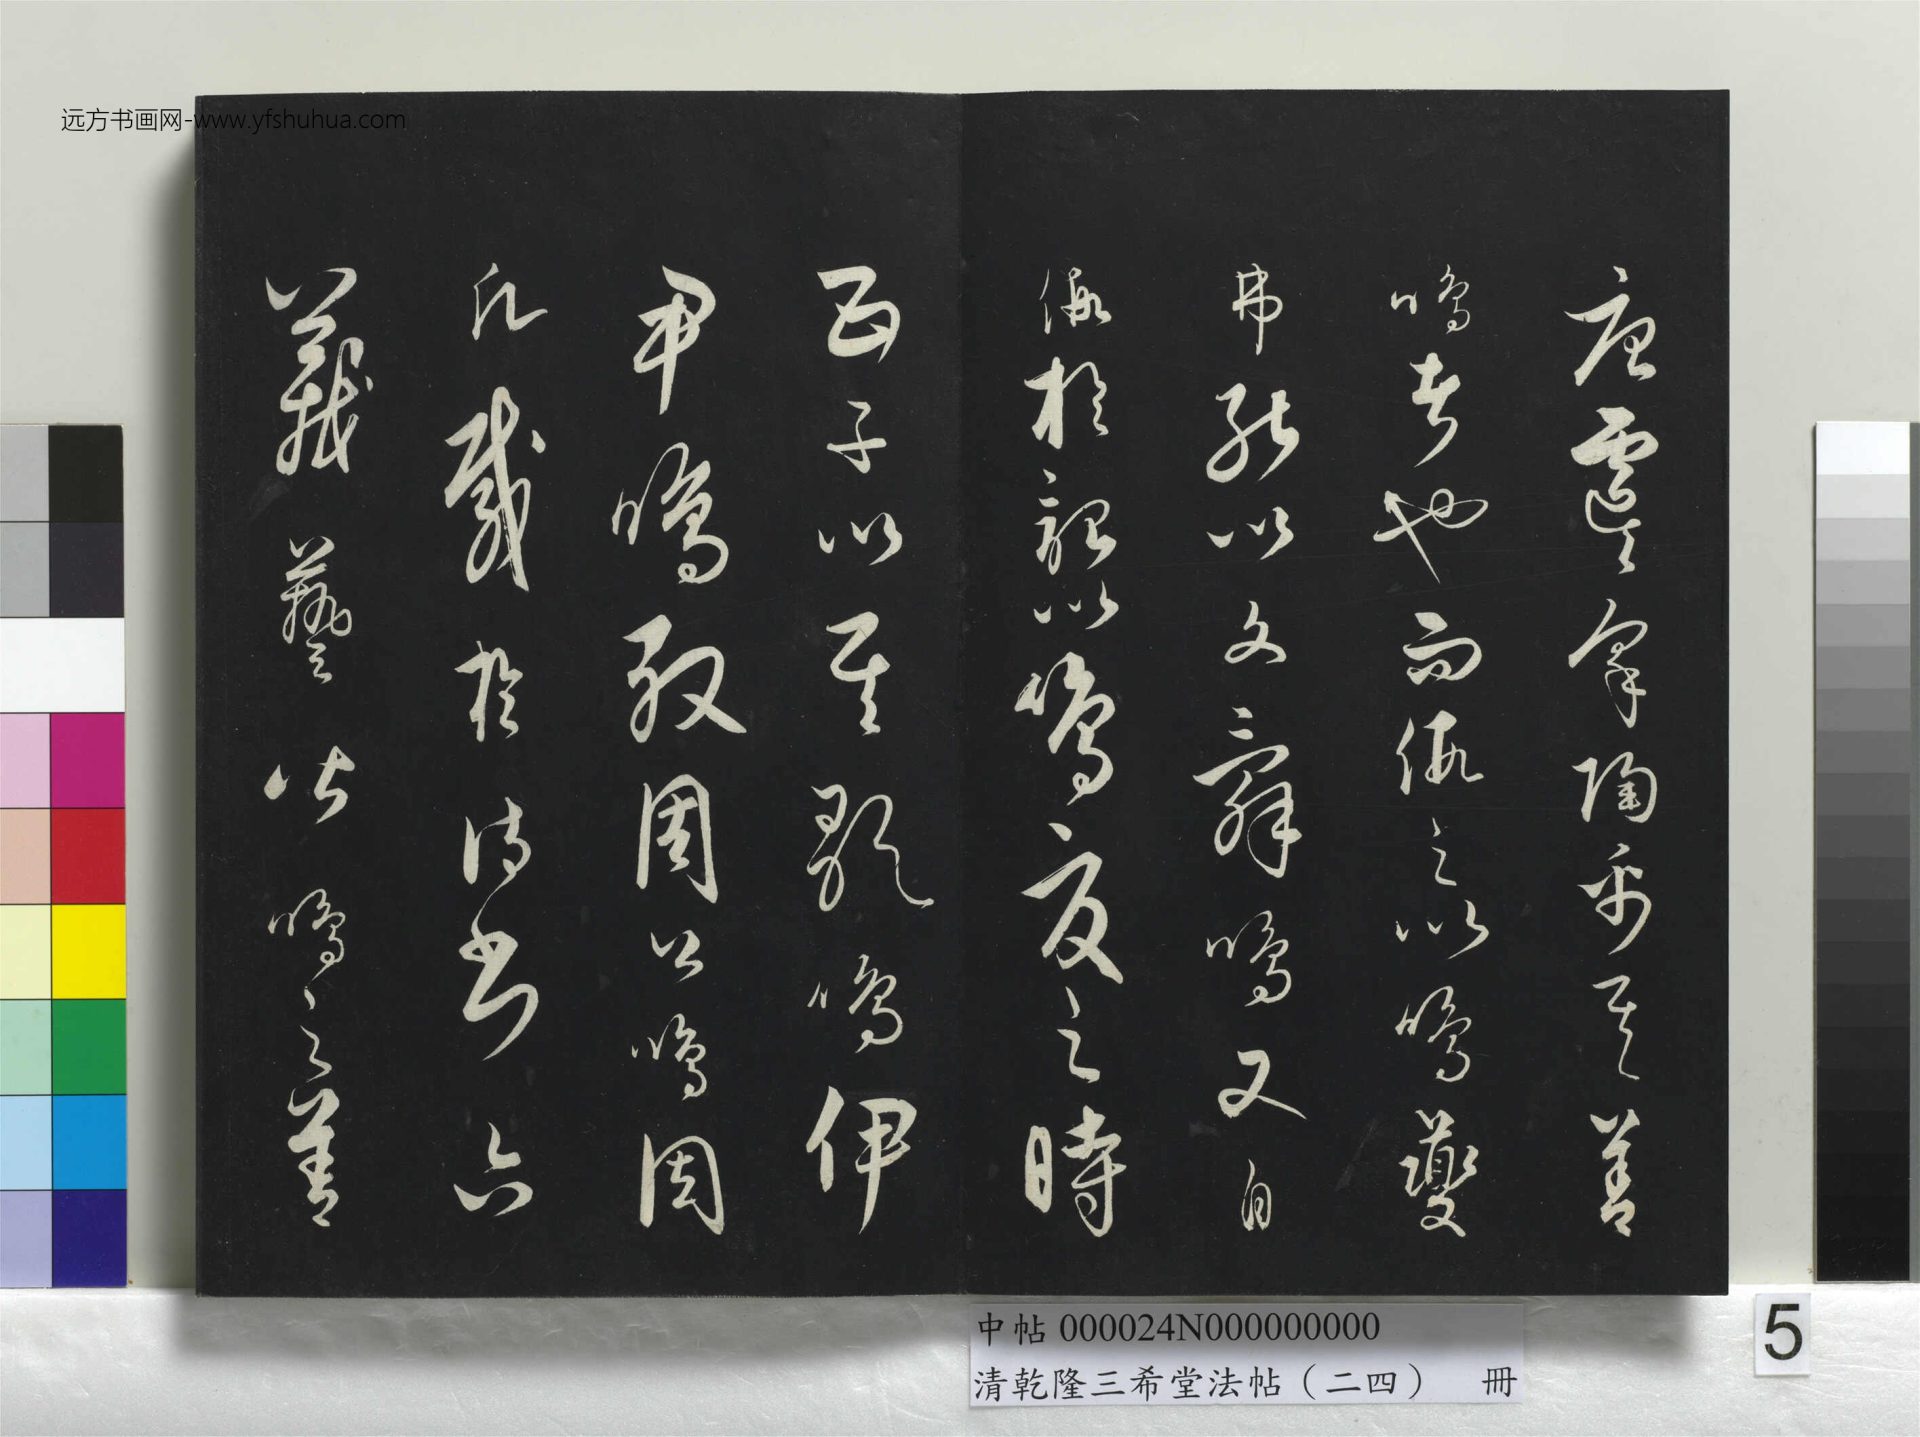 远方书画网-www.yfshuhua.com
唐虞皋陶禹其善
鳴者也而假之以鳴夔
弗能以文辭鳴又自
假於韶以鳴夏之時
五子以其歌鳴伊
尹鳴殷周公鳴周
凡載於詩書六
藝皆鳴之善
中帖 000024N000000000
清乾隆三希堂法帖(二四) 冊
5